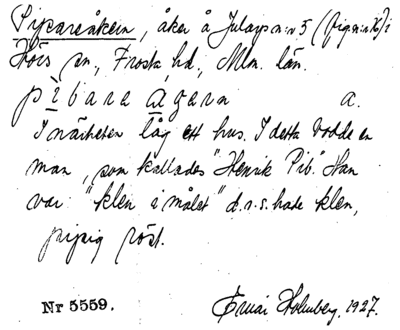 Pipareåkern, åker å Julaps n:r 5 (fig n:r 16) i
Hörs sn., Frosta hd., Mlm. län.
pìbara ågarn a.
I närheten låg ett hus. I detta bodde en
man, som kallades "Henrik Pib". Han
var "klen i målet" d.v.s. hade klen,
pipig röst.
Nr 5559. Ernst Holmberg. 1927.